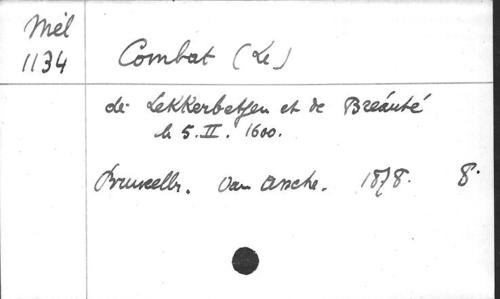 Mél
1134
Combat (Le)
de Lekkerbetjen et de Breáuté
le 5.II. 1600.
Bruxelles. Van Assche. 1878. 8.